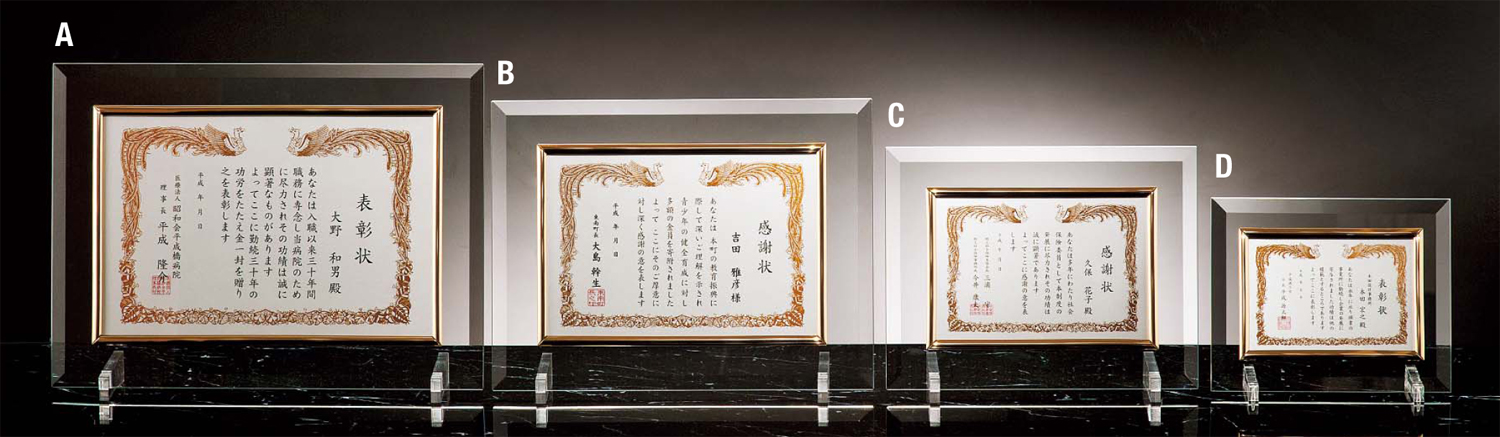 A
表彰状
大野 和男殿
あなたは入職以来三十年間
職務に専念し当病院のため
に尽力されその功績は誠に
顕著なものがあります
よってここに勤続三十年の
功労をたたえ金一封を贈り
之を表彰します
平成 年 月 日
医療法人 昭和会平成橋病院
理事長 平成 隆介
B
感謝状
吉田 雅彦様
あなたは 本町の教育振興に
際して深いご理解を示され
青少年の健全育成に対し
多額の金員を寄附されました
よって ここにそのご厚意に
対し深く感謝の意を表します
平成 年 月 日
東南町長 大島 幹生
C
感謝状
久保 花子殿
あなたは多年にわたり社会
保険委員として本制度の
発展に尽力されその功績は
誠に顕著であります
よってここに感謝の意を表
します
D
表彰状
本田 宏之殿